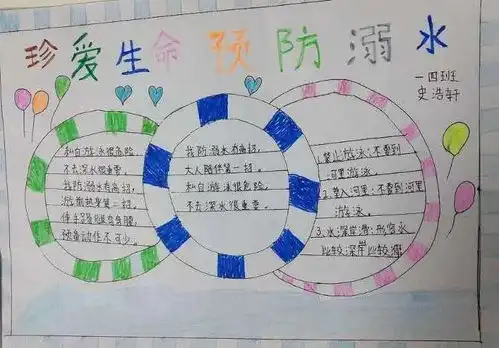 珍爱生命 预防溺水
一四班
史浩轩
私自游泳很危险
不去深水很重要。
我防溺水有高招,
游前热身第一招。
伸手踢腿弯弯腰,
预备动作不可少。
我防溺水有高招,
大人陪伴第一招。
私自游泳很危险,
不去深水很重要。
1.禁止游泳:不要到
河里游泳。
2.禁入河里:不要到河里
游泳。
3.水深岸滑:形容水
比较深岸比较滑